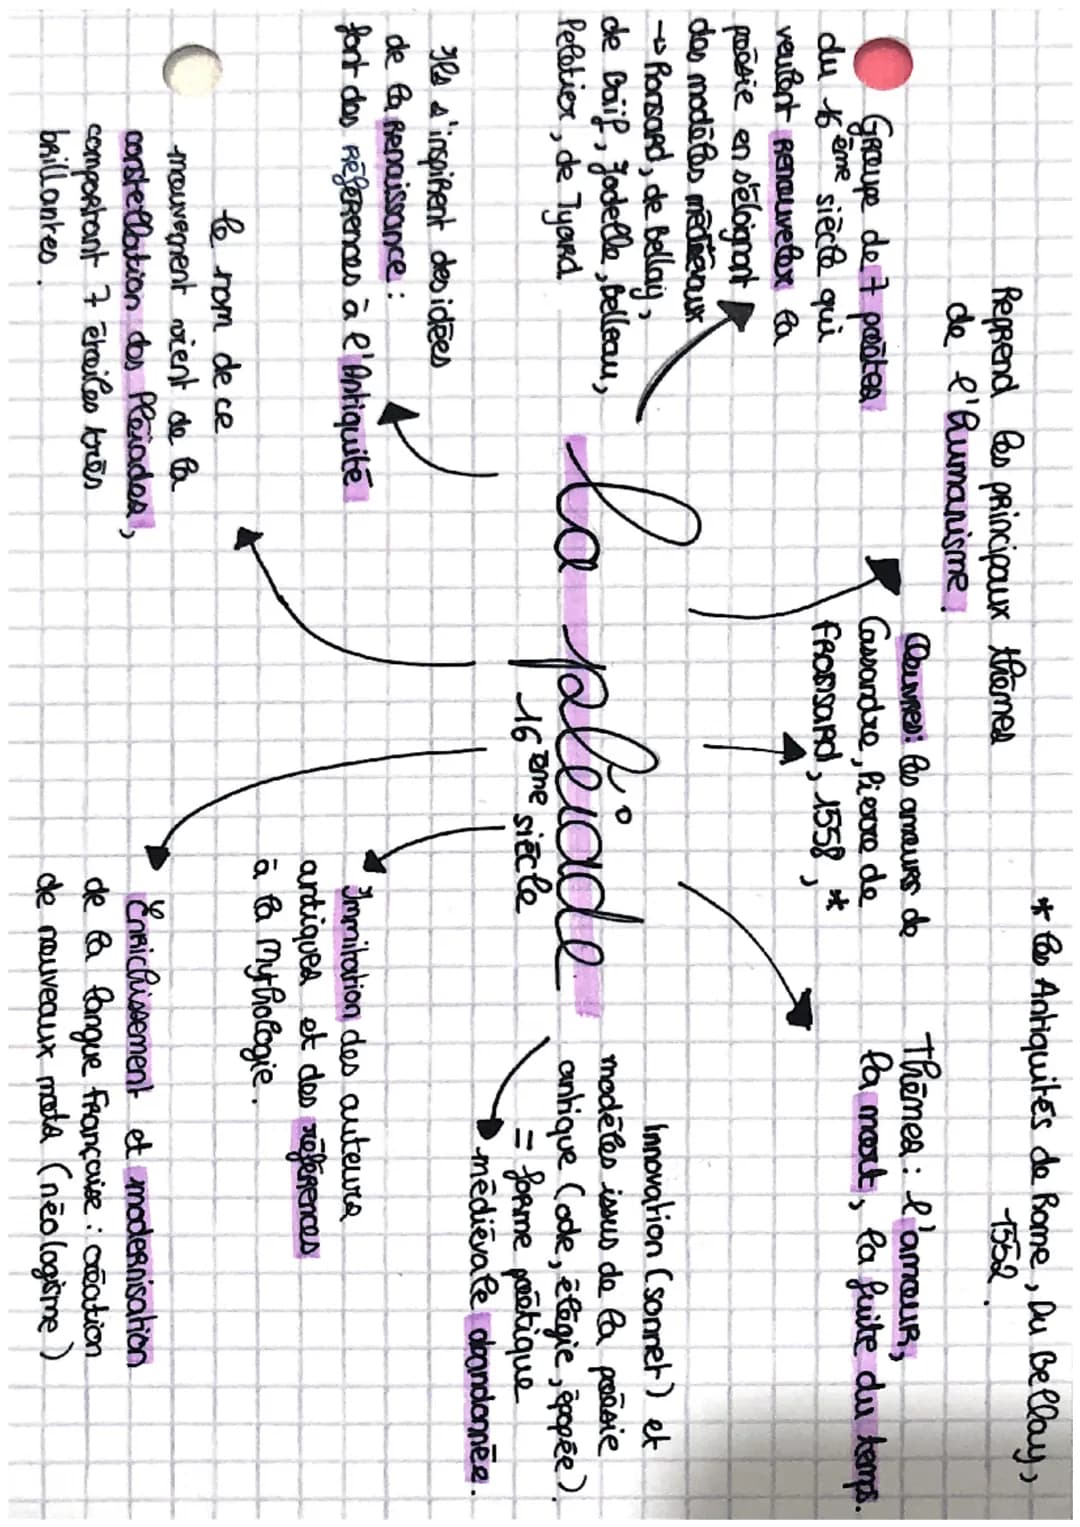 Reprend les principaux thèmes
de l'humanisme.
Groupe de 7 poètes
du 16ème siècle qui
veulent renouveler la
poésie en s'éloignant
des modèles médiévaux
→ Ronsard, de Bellay,
de Baïf, Jodelle, Belleau,
Peletier, de Tyard
Oeuvres: les amours de
Cassandre, Pierre de
Fronsard, 1558, *
* les Antiquités de Rome, Du Bellay,
1552.
Thèmes : l'amour,
la mort, la fuite du temps.
La Pléiade
16ème siècle
Ils s'inspirent des idées
de la Renaissance :
font des références à l'Antiquité
le nom de ce
mouvement vient de la
constellation des Pléiades,
comportant 7 étoiles très
brillantes.
Innovation (sonnet) et
modèles issus de la poésie
antique (ode, élégie, épopée).
= forme poétique
médiévale abandonnée.
Immitation des auteurs
antiques et des références
à la Mythologie.
Enrichissement et modernisation
de la langue française : création
de nouveaux mots (néologisme)